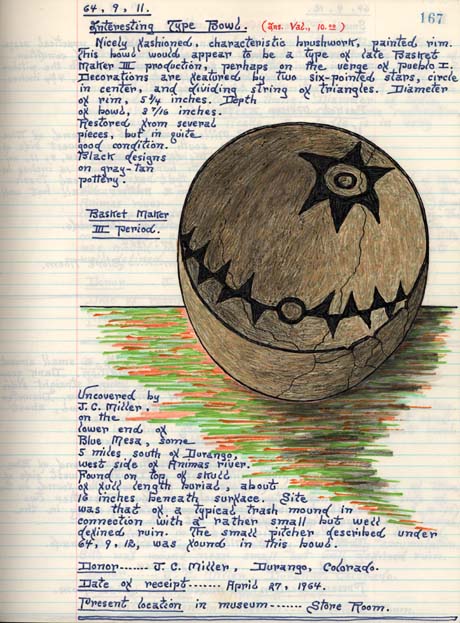 64, 9, 11.
167
Interesting Type Bowl. (Ins. Val., 10.00)
Nicely fashioned, characteristic brushwork, painted rim.
This bowl would appear to be a type of late Basket
Maker III production, perhaps on the verge of Pueblo I.
Decorations are featured by two six-pointed stars, circle
in center, and dividing string of triangles. Diameter
of rim, 5 3/4 inches. Depth
of bowl, 3 7/16 inches.
Restored from several
pieces, but in quite
good condition.
Black designs
on gray-tan
pottery.
Basket Maker
III period.
Uncovered by
J. C. Miller,
on the
lower end of
Blue Mesa, some
5 miles south of Durango,
west side of Animas river.
Found on top of skull
of full length burial, about
18 inches beneath surface. Site
was that of a typical trash mound in
connection with a rather small but well
defined ruin. The small pitcher described under
64, 9, 12, was found in this bowl.
Donor------ J. C. Miller, Durango, Colorado.
Date of receipt------- April 27, 1964.
Present location in museum------- Store Room.